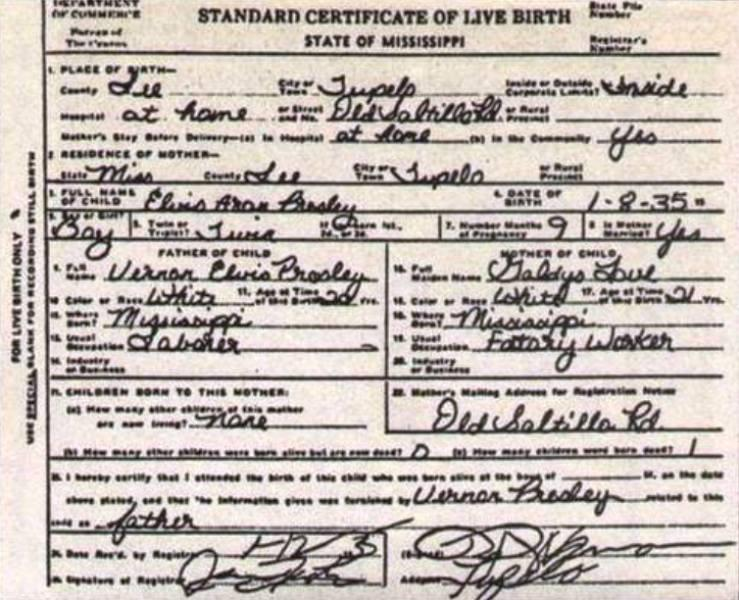 DEPARTMENT OF COMMERCE
Bureau of The Census
STANDARD CERTIFICATE OF LIVE BIRTH
STATE OF MISSISSIPPI
State File Number
Registrar's Number
FOR LIVE BIRTH ONLY
USE SPECIAL BLANK FOR RECORDING STILL BIRTH
1. PLACE OF BIRTH—
County Lee City or Town Tupelo Inside or Outside Corporate Limits? Inside
Hospital at home or Street and No. Old Saltillo Rd. or Rural Precinct
Mother's Stay Before Delivery—(a) In Hospital at home (b) In the Community Yes
2. RESIDENCE OF MOTHER—
State Miss County Lee City or Town Tupelo or Rural Precinct
3. FULL NAME OF CHILD Elvis Aron Presley 4. DATE OF BIRTH 1-8-35 19
Boy or Girl? Boy 5. Twin or Triplet? Twin If born 1st, 2d, or 3d. 7. Number Months of Pregnancy 9 8. Is Mother Married? Yes
FATHER OF CHILD
9. Full Name Vernon Elvis Presley
10. Color or Race White 11. Age at Time of this Birth 20 Yrs.
12. Where Born? Mississippi
13. Usual Occupation Laborer
14. Industry or Business
MOTHER OF CHILD
15. Full Maiden Name Galdys Love
16. Color or Race White 17. Age at Time of this Birth 21 Yrs.
18. Where Born? Mississippi
19. Usual Occupation Fattory Worker
20. Industry or Business
21. CHILDREN BORN TO THIS MOTHER:
(a) How many other children of this mother are now living? none
22. Mother's Mailing Address for Registration Notice
Old Saltillo Rd.
(b) How many other children were born alive but are now dead? 0 (c) How many children were born dead? 1
23. I hereby certify that I attended the birth of this child who was born alive at the hour of M. on the date
above stated, and that the information given was furnished by Vernon Presley related to this
child as father
24. Date Rec'd. by Registrar
(Signed)
25. Signature of Registrar
Address Tupelo